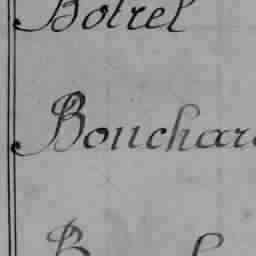 Botrel
Bouchar